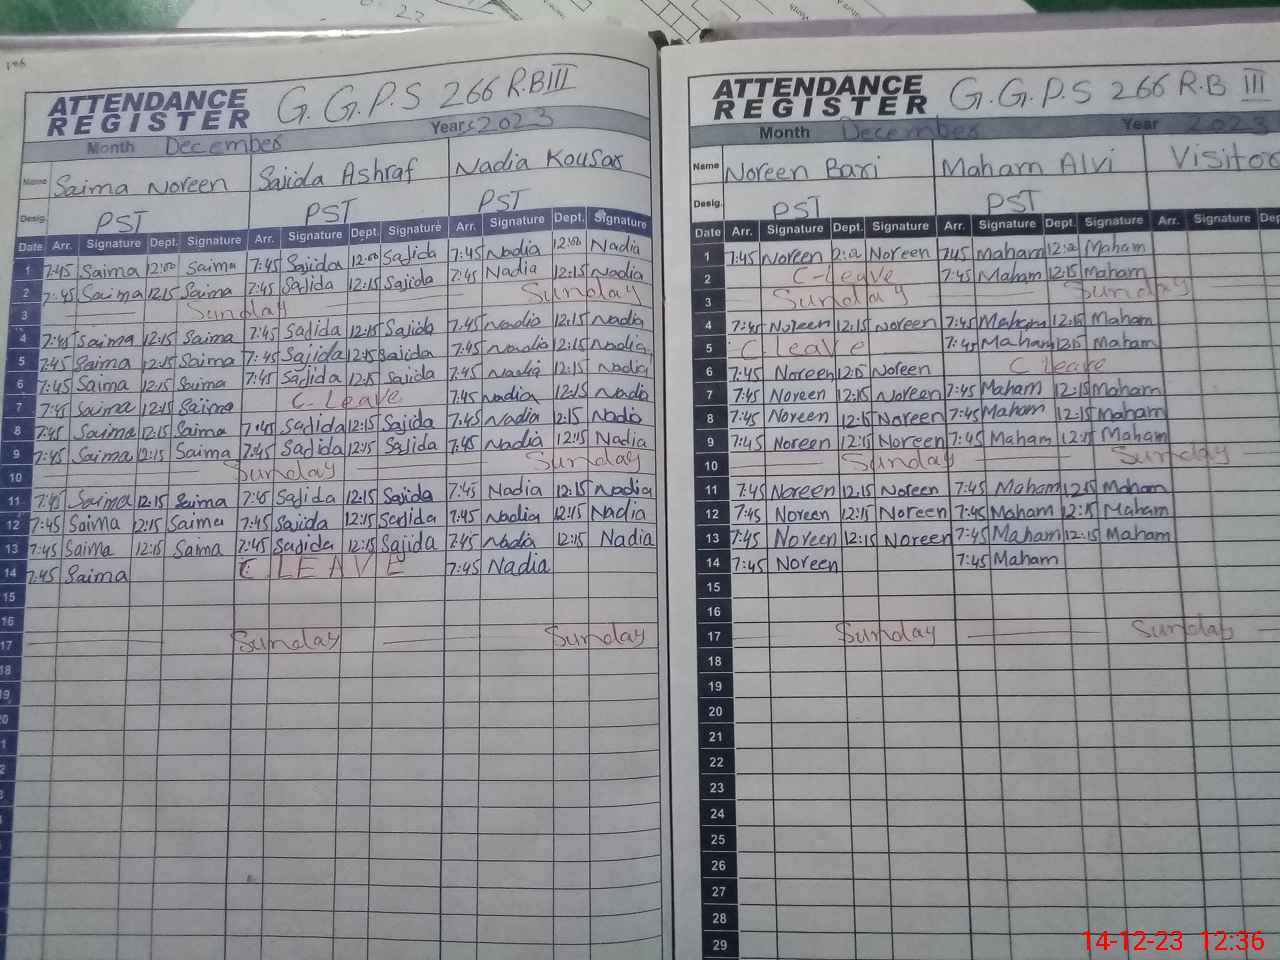 ATTENDANCE REGISTER G.G.P.S 266 R.B III
Month December Year 2023
Name Saima Noreen Sajida Ashraf Nadia Kousar
Desig. PST PST PST
Date Arr. Signature Dept. Signature Arr. Signature Dept. Signature Arr. Signature Dept. Signature
1 7:45 Saima 12:00 Saima 7:45 Sajida 12:00 Sajida 7:45 Nadia 12:00 Nadia
2 7:45 Saima 12:15 Saima 7:45 Sajida 12:15 Sajida 7:45 Nadia 12:15 Nadia
3 Sunday Sunday
4 7:45 Saima 12:15 Saima 7:45 Sajida 12:15 Sajida 7:45 Nadia 12:15 Nadia
5 7:45 Saima 12:15 Saima 7:45 Sajida 12:15 Sajida 7:45 Nadia 12:15 Nadia
6 7:45 Saima 12:15 Saima 7:45 Sajida 12:15 Sajida 7:45 Nadia 12:15 Nadia
7 7:45 Saima 12:15 Saima C-Leave 7:45 Nadia 12:15 Nadia
8 7:45 Saima 12:15 Saima 7:45 Sajida 12:15 Sajida 7:45 Nadia 12:15 Nadia
9 7:45 Saima 12:15 Saima 7:45 Sajida 12:15 Sajida 7:45 Nadia 12:15 Nadia
10 Sunday Sunday
11 7:45 Saima 12:15 Saima 7:45 Sajida 12:15 Sajida 7:45 Nadia 12:15 Nadia
12 7:45 Saima 12:15 Saima 7:45 Sajida 12:15 Sajida 7:45 Nadia 12:15 Nadia
13 7:45 Saima 12:15 Saima 7:45 Sajida 12:15 Sajida 7:45 Nadia 12:15 Nadia
14 7:45 Saima C.LEAVE 7:45 Nadia
15
16
17 Sunday Sunday
18
19
ATTENDANCE REGISTER G.G.P.S 266 R.B III
Month December Year 2023
Name Noreen Bari Maham Alvi Visitor
Desig. PST PST
Date Arr. Signature Dept. Signature Arr. Signature Dept. Signature Arr. Signature Dep
1 7:45 Noreen Noreen 7:45 Maham Maham
2 C-Leave 7:45 Maham 12:15 Maham
3 Sunday Sunday
4 7:45 Noreen 12:15 Noreen 7:45 Maham 12:15 Maham
5 C Leave 7:45 Maham 12:15 Maham
6 7:45 Noreen 12:15 Noreen C Leave
7 7:45 Noreen 12:15 Noreen 7:45 Maham 12:15 Maham
8 7:45 Noreen 12:15 Noreen 7:45 Maham 12:15 Maham
9 7:45 Noreen 12:15 Noreen 7:45 Maham 12:15 Maham
10 Sunday Sunday
11 7:45 Noreen 12:15 Noreen 7:45 Maham 12:15 Maham
12 7:45 Noreen 12:15 Noreen 7:45 Maham 12:15 Maham
13 7:45 Noreen 12:15 Noreen 7:45 Maham 12:15 Maham
14 7:45 Noreen 7:45 Maham
15
16
17 Sunday Sunday
18
19
20
21
22
23
24
25
26
27
28
29
14-12-23 12:36